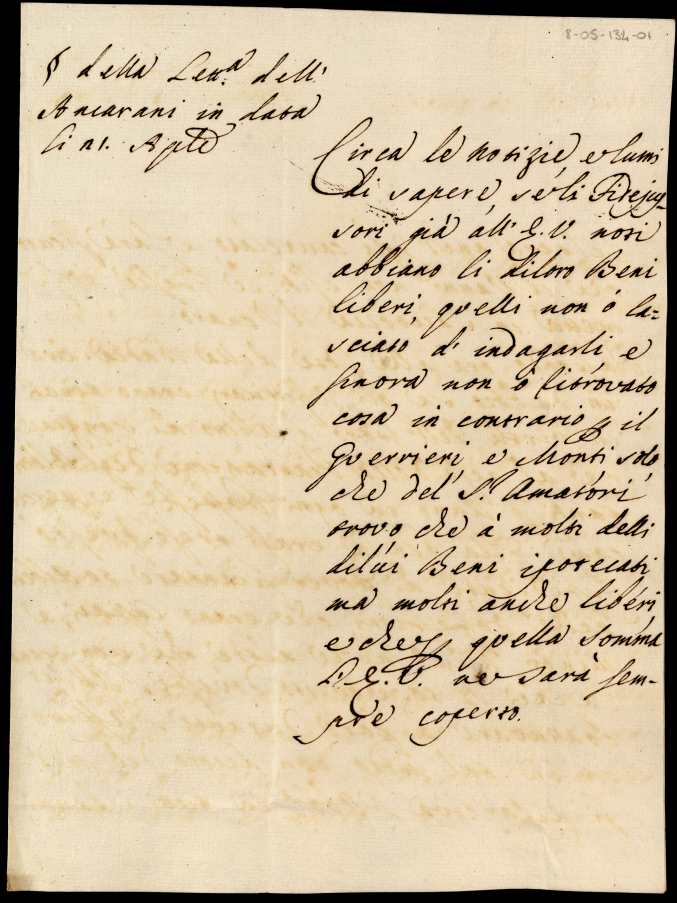 8-05-134-01
§ della Letta. dell'
Ancarani in data
li 21. Aple
Circa le notizie, e lumi
di sapere, se li Fidejus-
sori già all' E. V. noti
abbiano li diloro Beni
liberi, quelli non ò la=
sciato d' indagarli e
finora non ò ritrovato
cosa in contrario p il
Guerrieri, e Monti solo
che del' Sr. Amatori
trovo che à molti delli
dilui Beni ipotecati
ma molti anche liberi
e che p quella Somma
L'E. V. ne sarà sem-
pre coperto.